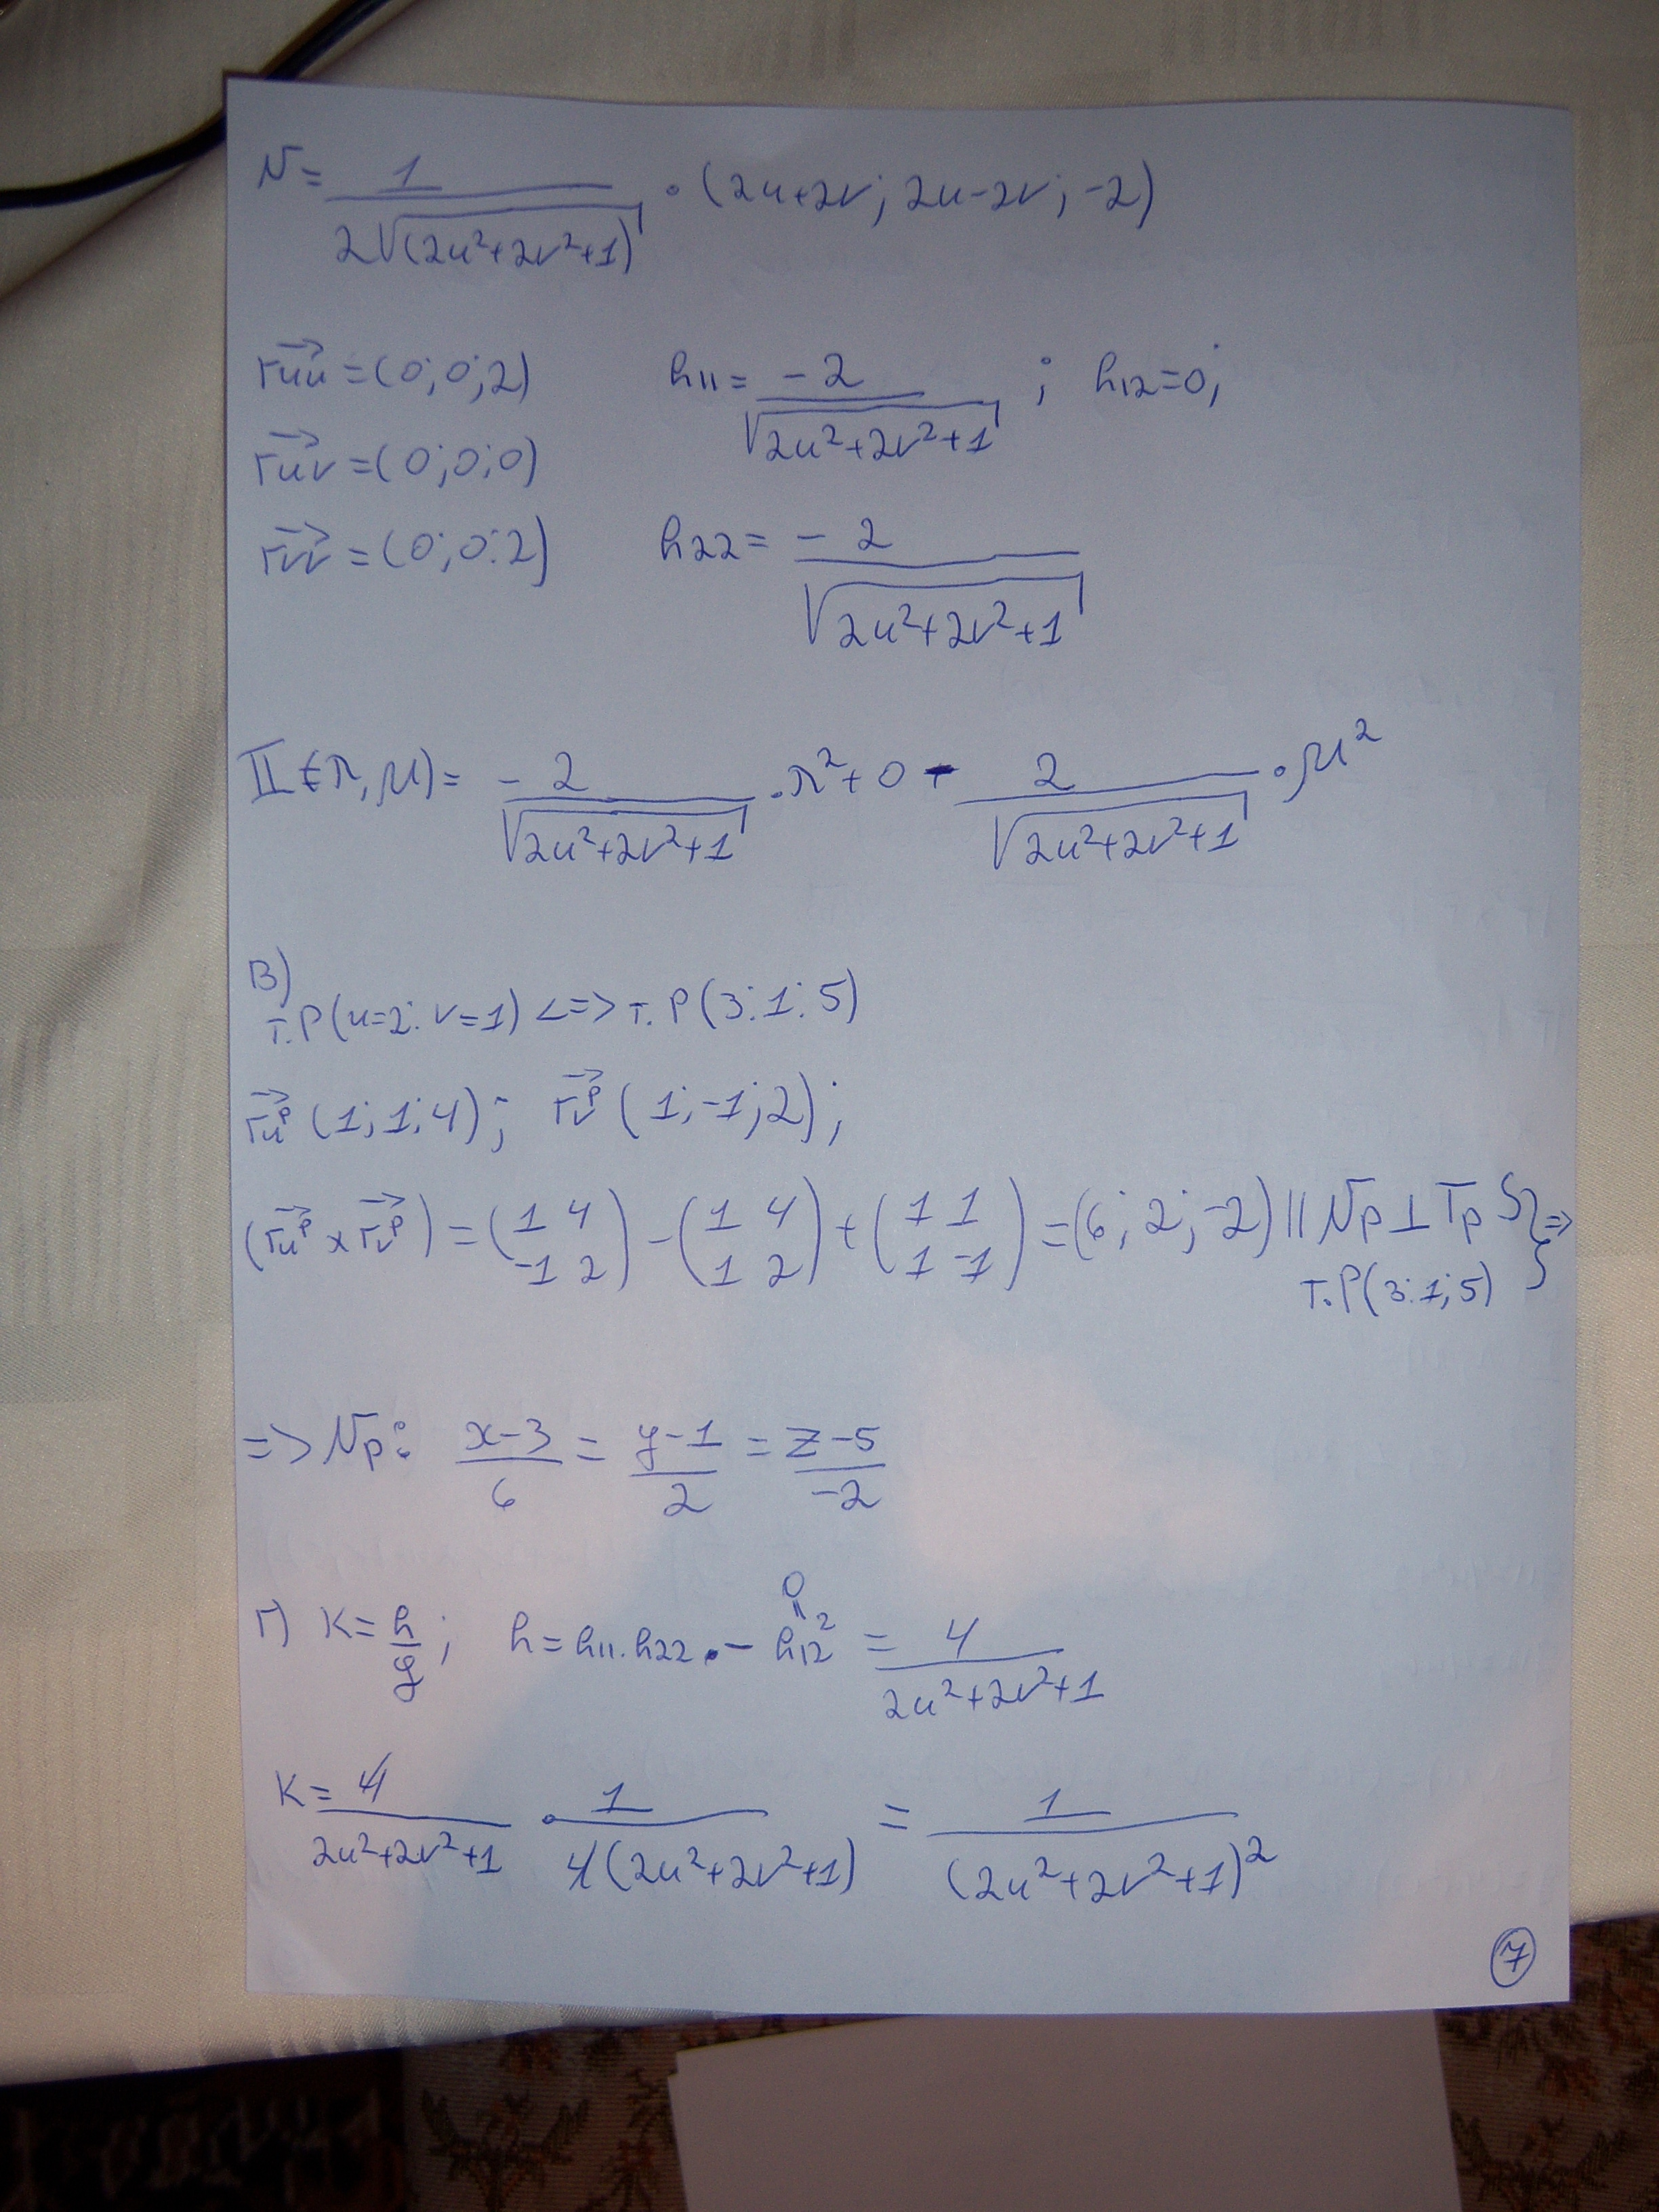 N = 1/(2√(2u²+2v²+1)) · (2u+2v; 2u-2v; -2)
r⃗uu = (0; 0; 2) h11 = -2/√(2u²+2v²+1) ; h12=0;
r⃗uv = (0; 0; 0)
r⃗vv = (0; 0; 2) h22 = -2/√(2u²+2v²+1)
II(λ, μ) = -2/√(2u²+2v²+1) · λ² + 0 - 2/√(2u²+2v²+1) · μ²
В)
т.P(u=2; v=1) <=> т.P(3; 1; 5)
r⃗uᵖ (1; 1; 4); r⃗vᵖ (1; -1; 2);
(r⃗uᵖ × r⃗vᵖ) = (1 4 / -1 2) - (1 4 / 1 2) + (1 1 / 1 -1) = (6; 2; -2) || Np ⊥ Tp S} =>
т.P(3; 1; 5)
=> Np: (x-3)/6 = (y-1)/2 = (z-5)/-2
Г) K = h/g; h = h11.h22 - h12² = 4/(2u²+2v²+1)
0
॥
K = 4/(2u²+2v²+1) · 1/(4(2u²+2v²+1)) = 1/(2u²+2v²+1)²
7